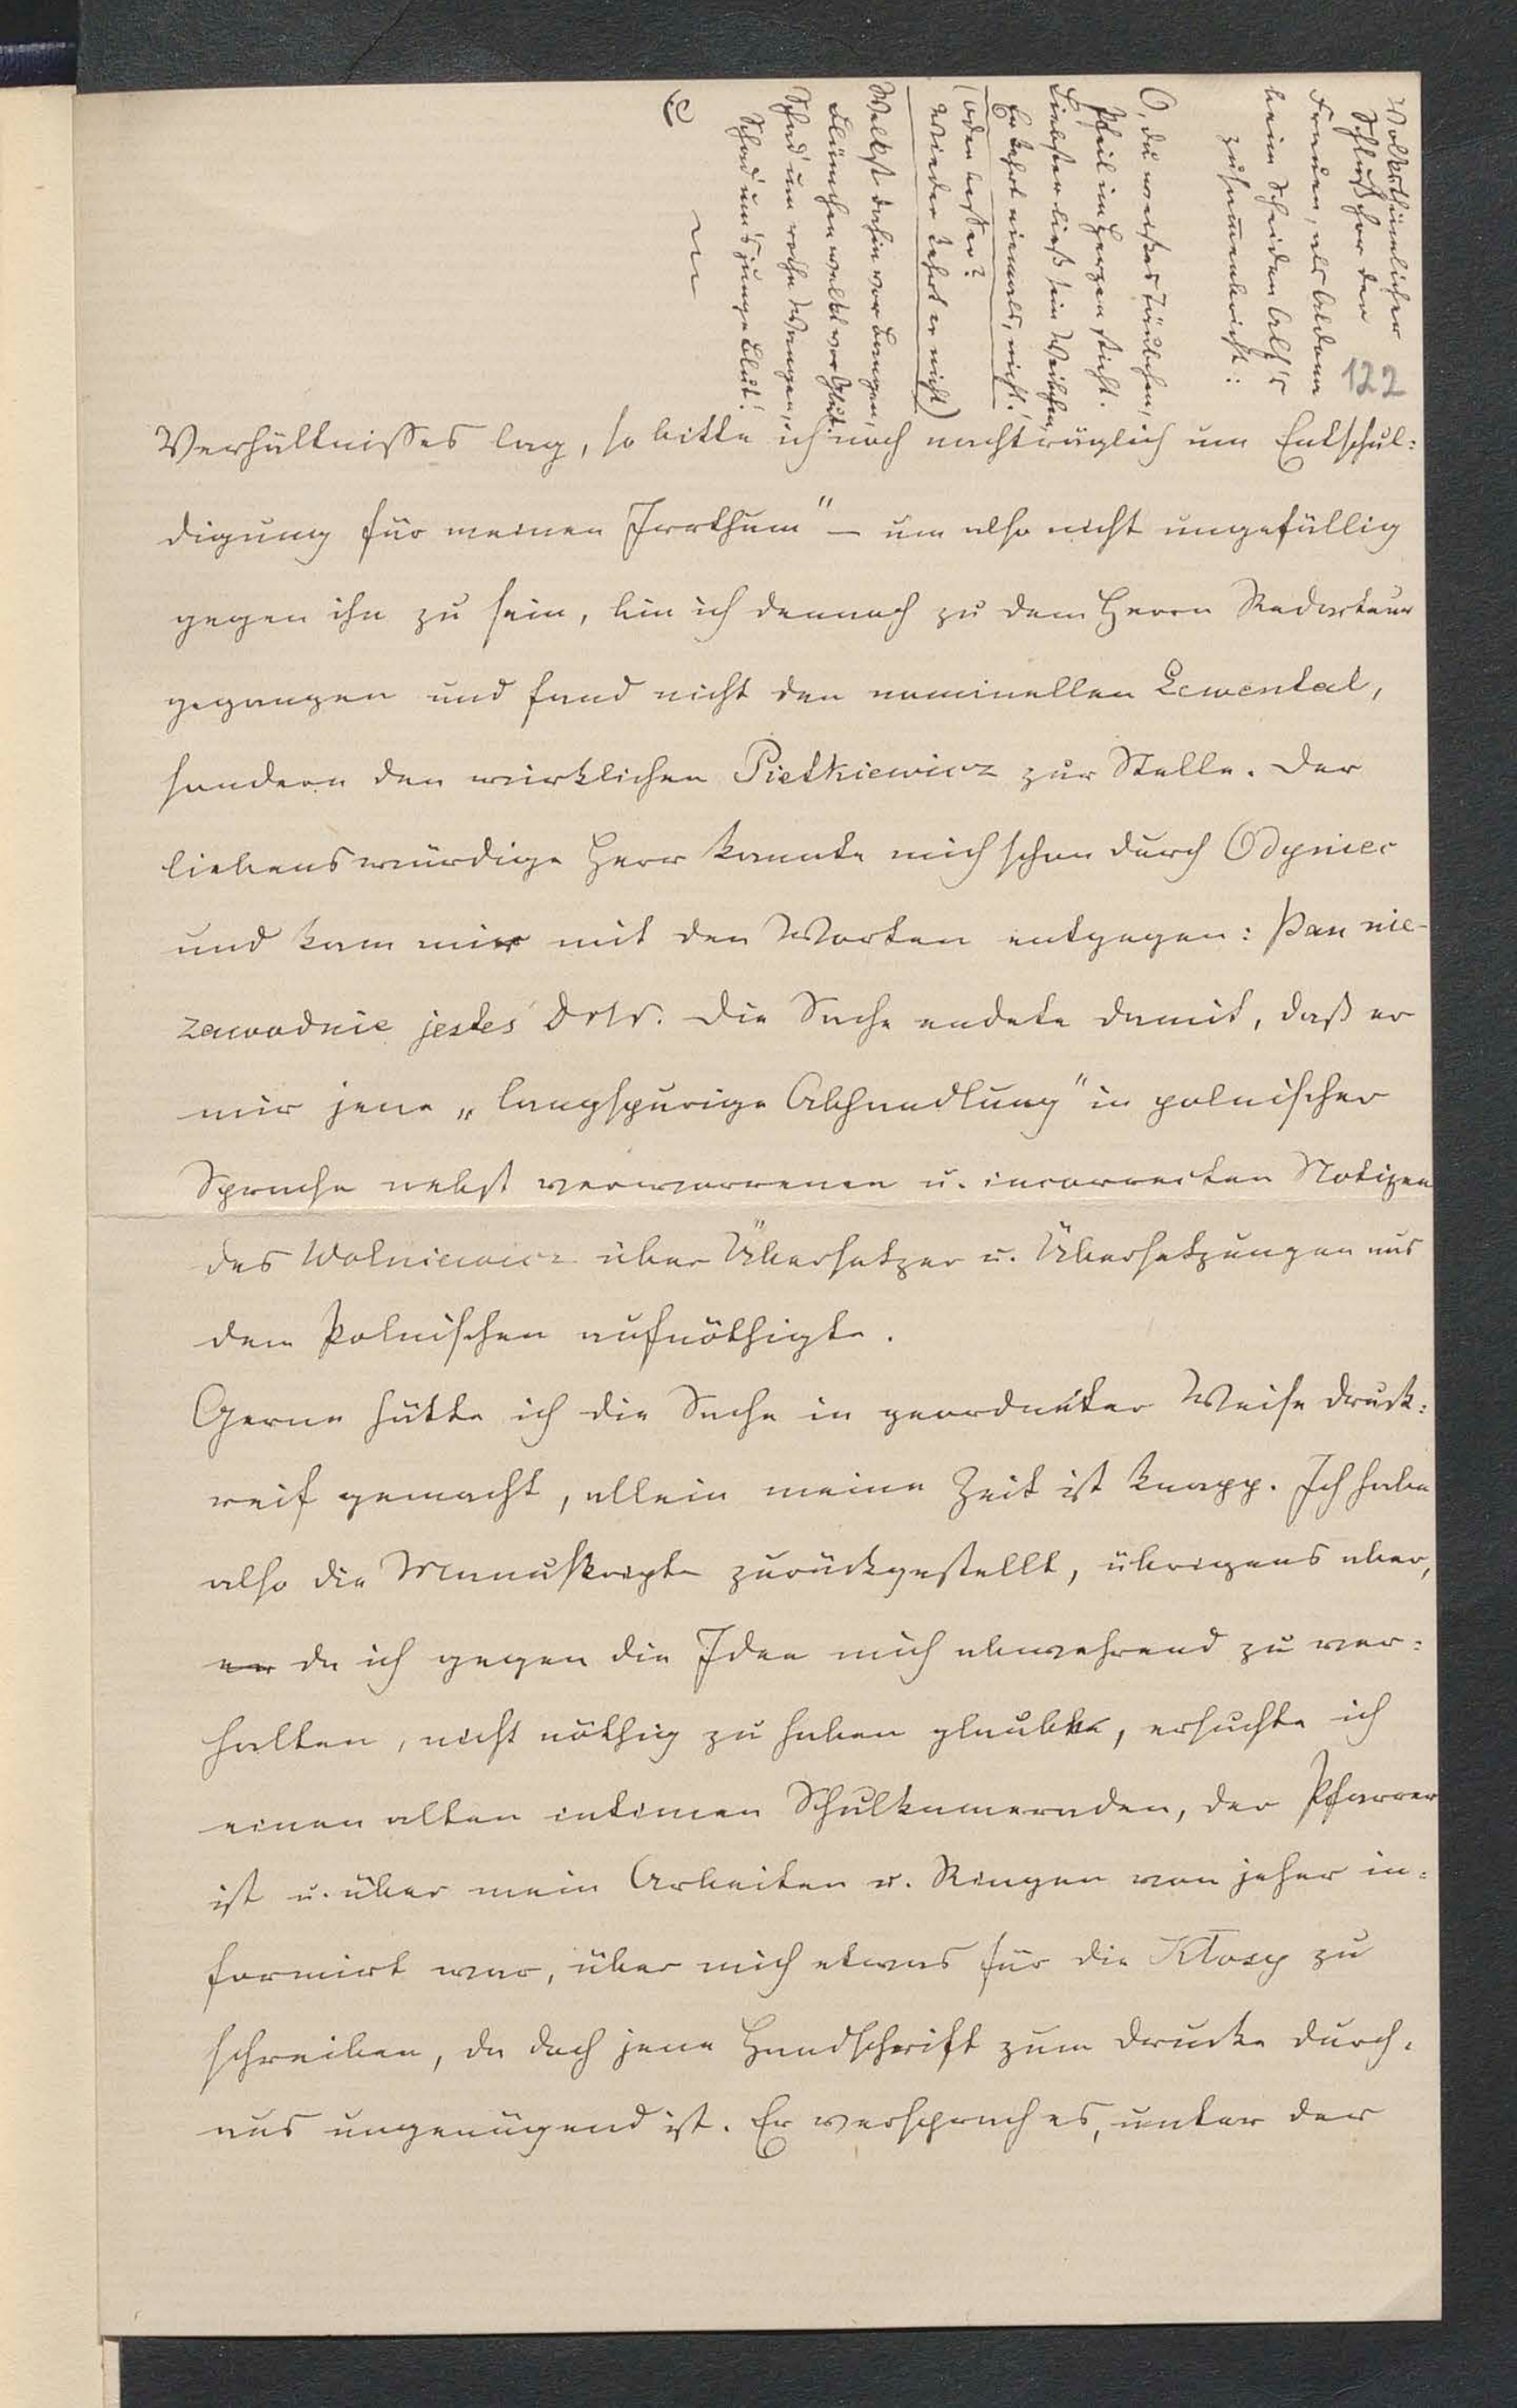 Volksthümlicher
Schlußchor der
Frauen, als Aldona
beim Scheiden Alf's
zusammenbricht:
O, du weißes Täubchen,
Pfeil im Herzen sticht.
Liebster ließ sein Weibchen,
Er kehrt niemals, nicht!
(oder besser?
Wieder kehrt er nicht)
Welkst dahin vor Bangen,
Blümchen welkt vor Glut.
Schad' um rothe Wangen,
Schad' um's junge Blut!
122
Verhältnisses lag, so bitte ich noch nachträglich um Entschul:
digung für meinen Irrthum" — um also nicht ungefällig
gegen ihn zu sein, bin ich dennoch zu dem Herrn Redacteur
gegangen und fand nicht den nominellen Lewental,
sondern den wirklichen Pietkiewicz zur Stelle. Der
liebenswürdige Herr kannte mich schon durch Odyniec
und kam mir mit den Worten entgegen: Pan nie-
zawodnie jesteś Die Sache endete damit, daß er
mir jene „langspurige Abhandlung" in polnischer
Sprache nebst verworrenen u. incorrecten Notizen
des Wolniewicz über Übersetzer u. Übersetzungen aus
dem Polnischen aufnöthigte.
Gerne hätte ich die Sache in geordneter Weise druck:
reif gemacht, allein meine Zeit ist knapp. Ich habe
also die Manuskripte zurückgestellt, übrigens aber,
da ich gegen die Idee mich abwehrend zu ver:
halten, nicht nöthig zu haben glaubte, ersuchte ich
einen alten intimen Schulkameraden, der Pfarrer
ist u. über mein Arbeiten u. Ringen von jeher in:
formirt war, über mich etwas für die Kłosy zu
schreiben, da doch jene Handschrift zum Drucke durch:
aus ungenügend ist. Er versprach es, unter der